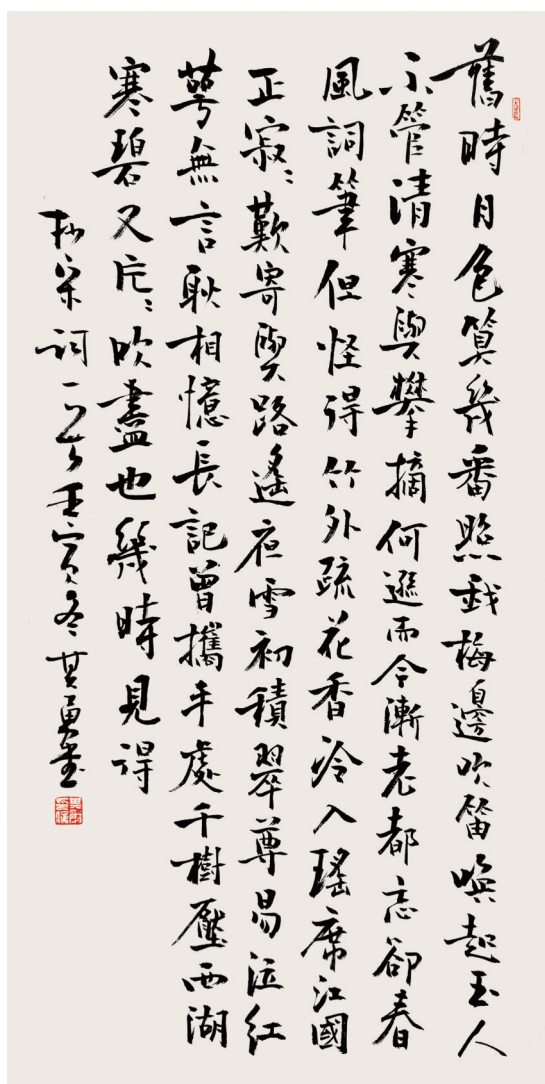 舊時月色算幾番照我梅邊吹笛喚起玉人
不管清寒與攀摘何遜而今漸老都忘卻春
風詞筆但怪得竹外疏花香冷入瑤席江國
正寂〻歎寄與路遙夜雪初積翠尊易泣紅
萼無言耿相憶長記曾攜手處千樹壓西湖
寒碧又片〻吹盡也幾時見得
抄宋詞一首壬寅冬其勇書